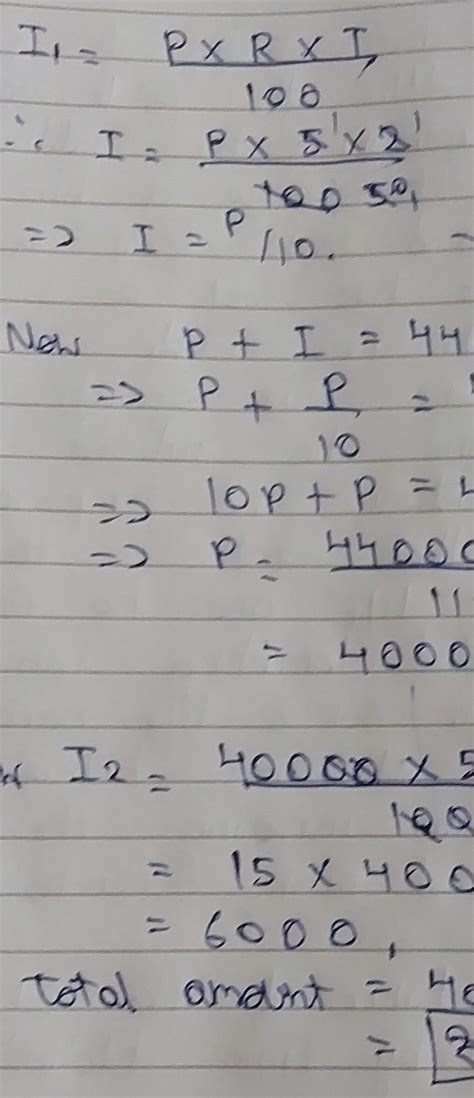 I₁ = P × R × T
100
∴ I = P × 5 × 2
100 50
=> I = P/10.
Now P + I = 44
=> P + P =
10
=> 10P + P = 4
=> P = 44000
11
= 4000
I2 = 40000 × 5
100
= 15 × 400
= 6000,
total amount = 40
= 2